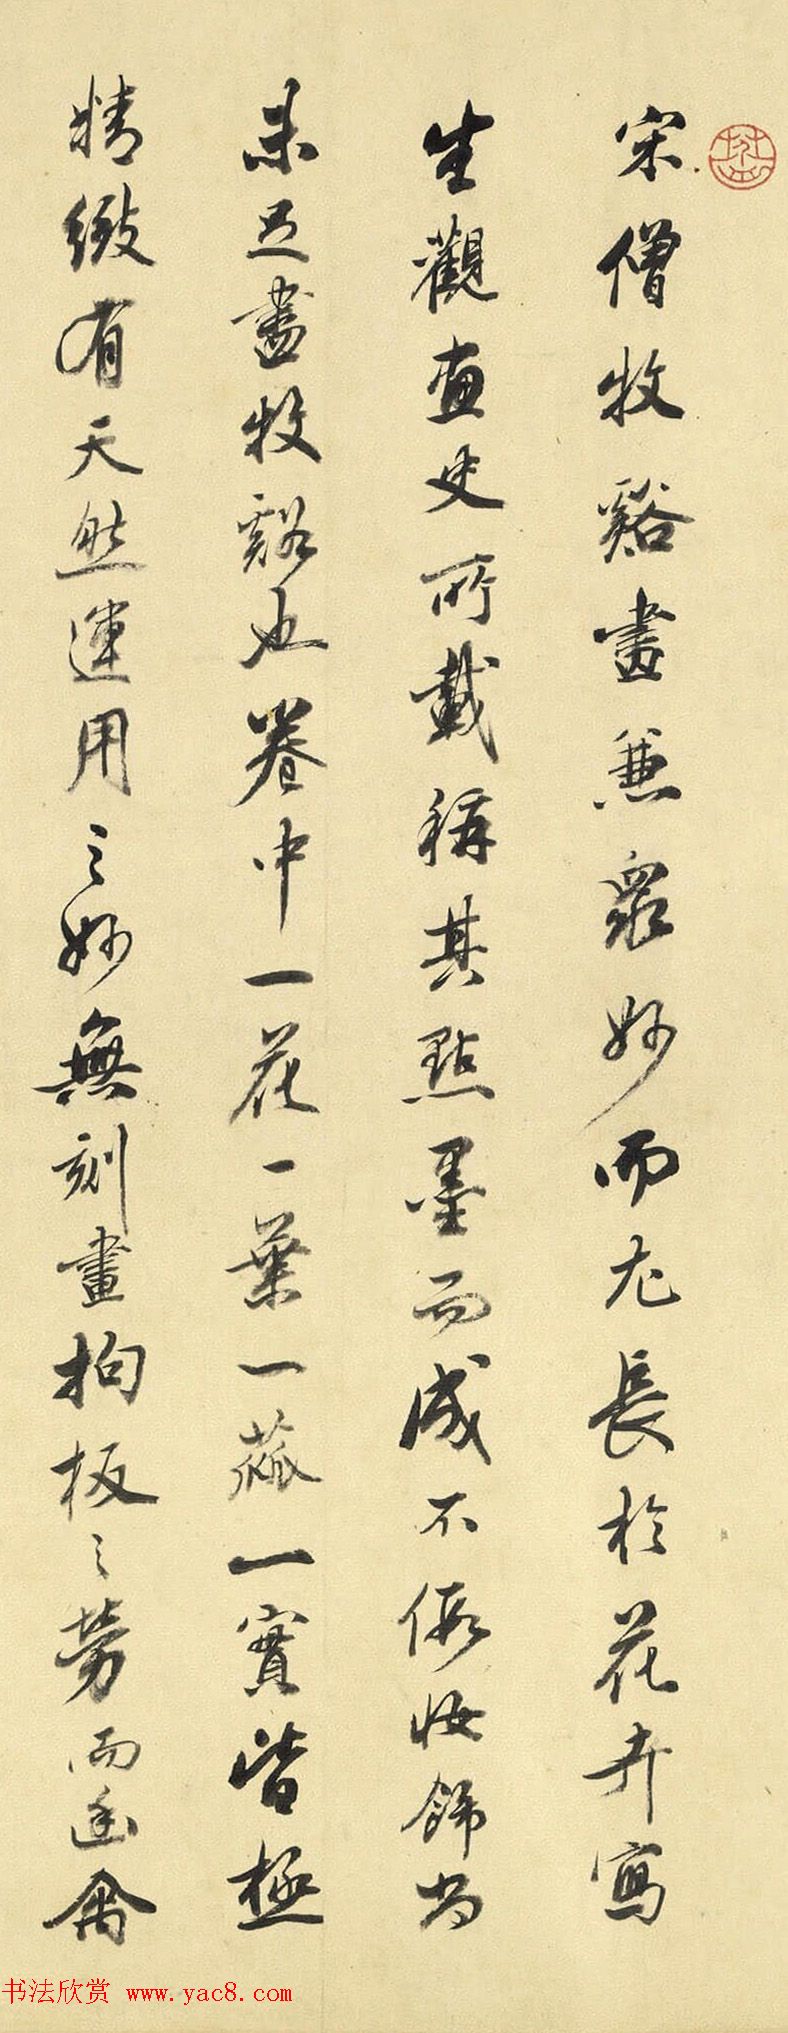 宋僧牧谿畫兼衆妙而尤長於花卉寫
生觀畫史所載稱其點墨而成不假妝飾尚
未足盡牧谿也卷中一花一葉一蓏一實皆極
精緻有天然運用之妙無刻畫拘板之勞而幽禽
书法欣赏 www.yac8.com